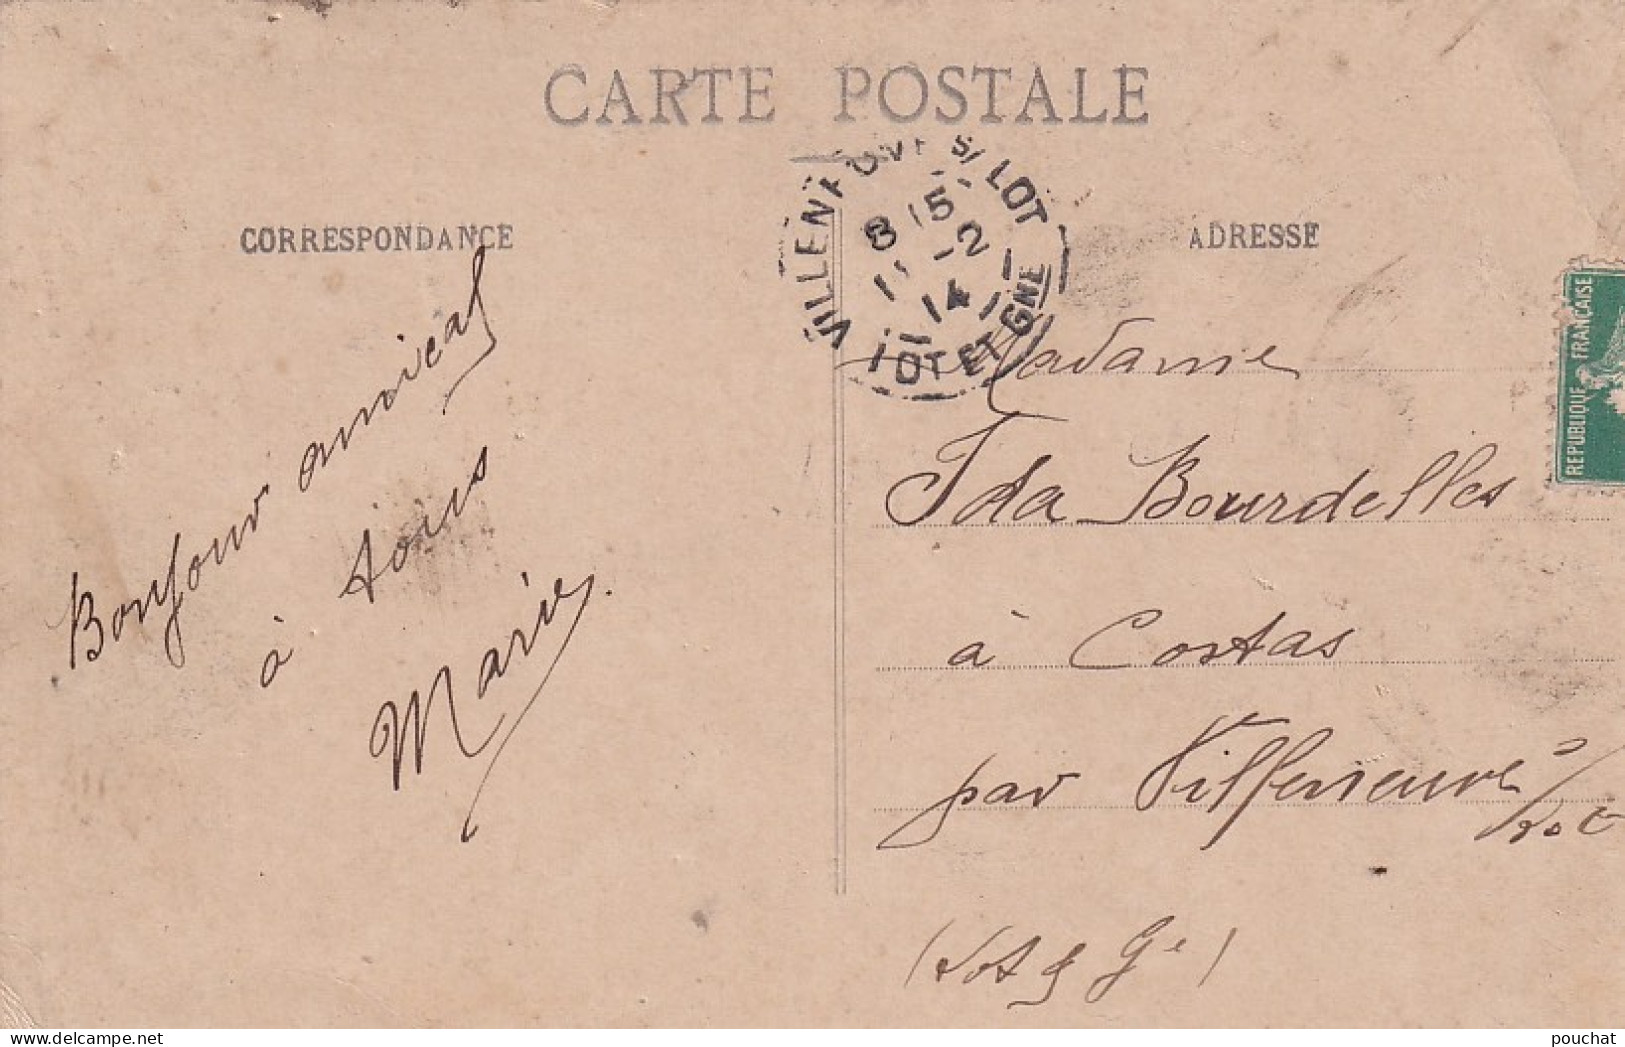 CARTE POSTALE
CORRESPONDANCE
ADRESSE
VILLENEUVE S/ LOT
8 15
1 - 2
14
LOT ET GNE
REPUBLIQUE FRANÇAISE
Bonjour amical
à tous
Marie.
Madame
Ida Bourdelles
à Costas
par Villeneuve s/
Lot
(Lot & Ge)
pouchat